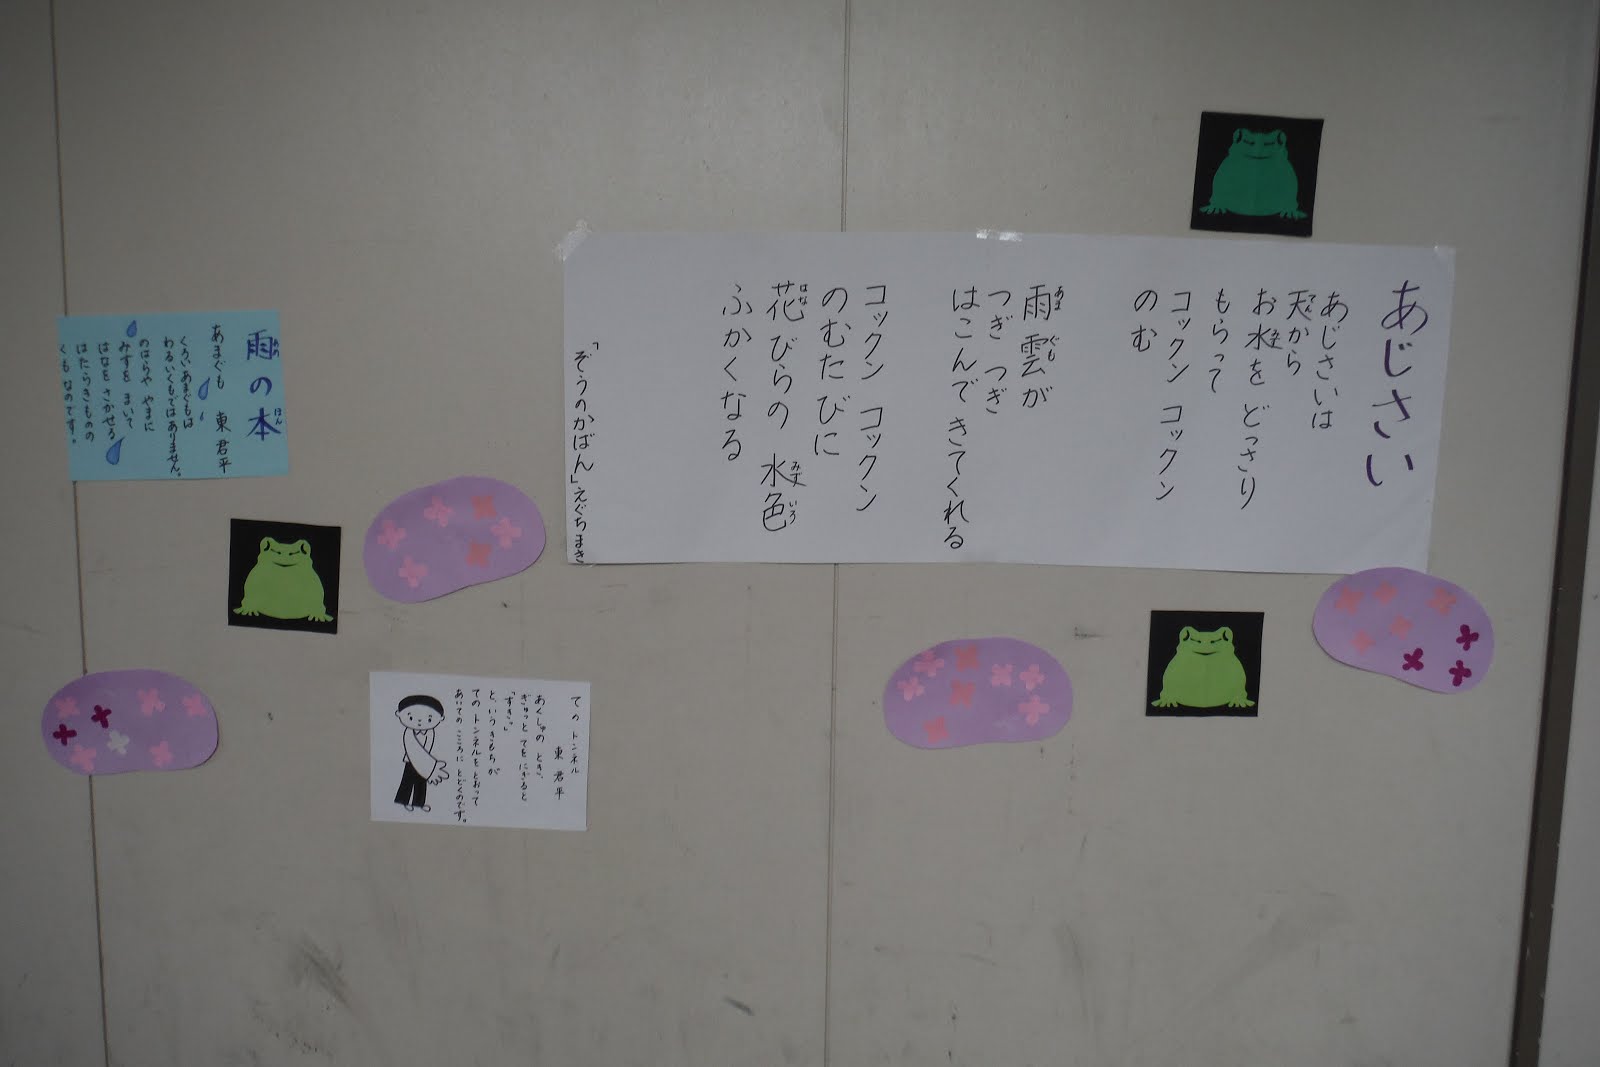 あじさい
あじさいは
天から
お水を どっさり
もらって
コックン コックン
のむ
雨雲が
つぎ つぎ
はこんで きてくれる
コックン コックン
のむたびに
花びらの 水色
ふかくなる
「ぞうのかばん」えぐちまき
雨の本
あまぐも 東君平
くろいあまぐもは
わるいくもではありません。
のはらや やまに
みずを まいて
はなを さかせる
はたらきものの
くもなのです。
てのトンネル
東君平
あくしゅの とき、
ぎゅっと てを にぎると
「すきっ」
と、いうきもちが
てのトンネルをとおって
あいての こころに とどくのです。